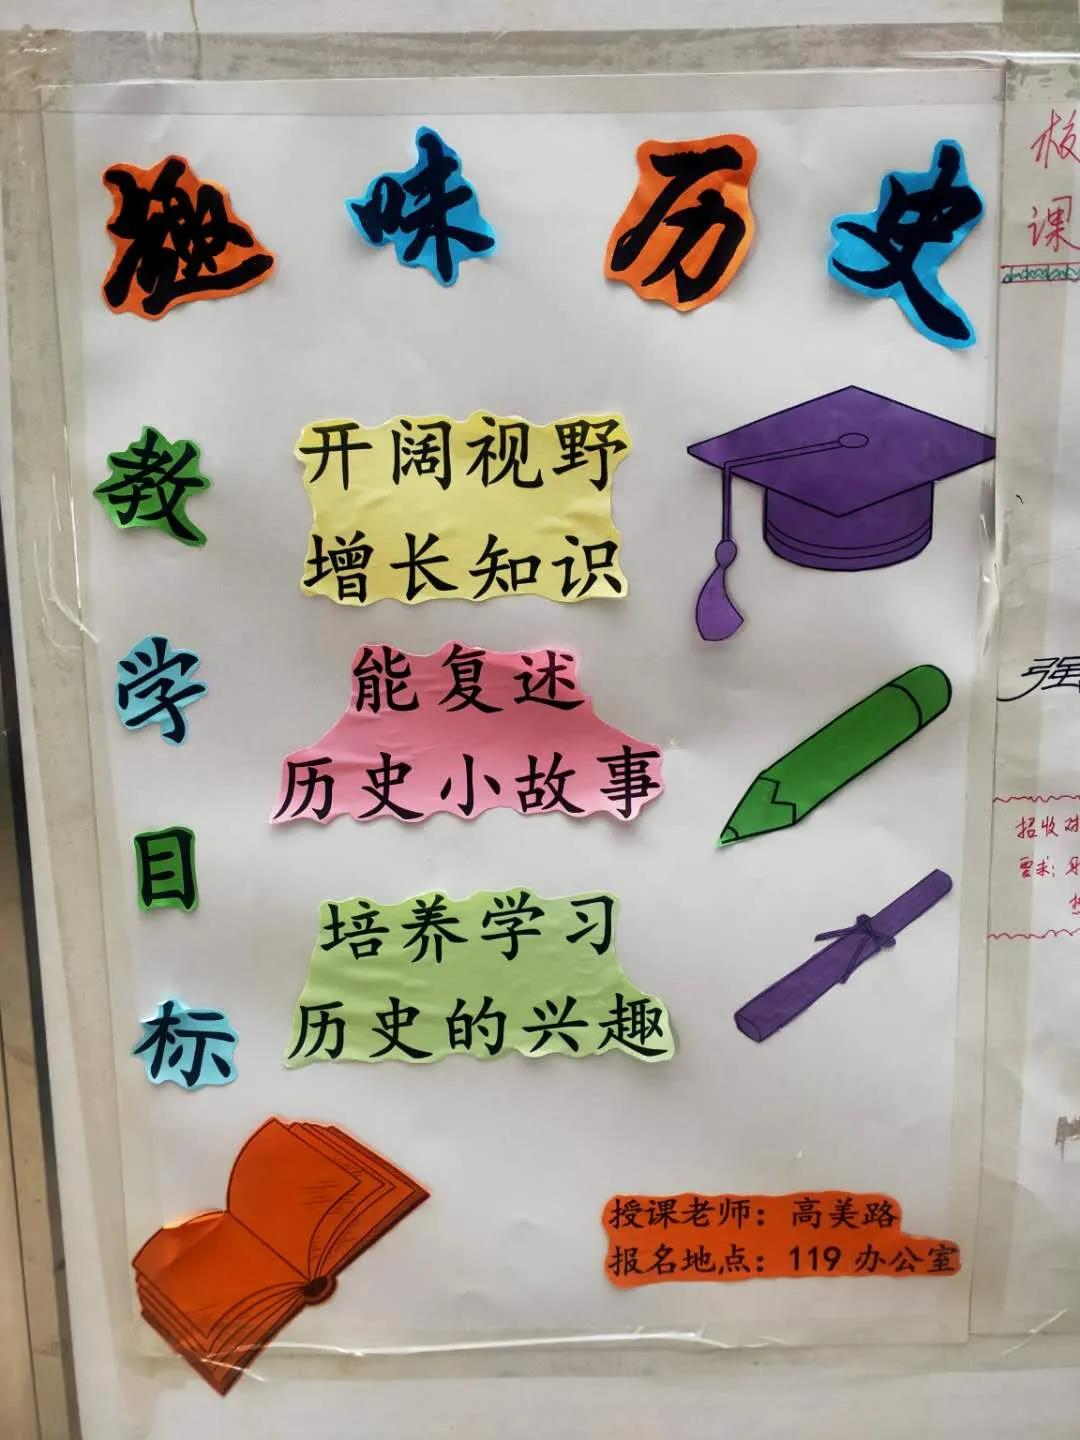 趣味历史
教学目标
开阔视野
增长知识
能复述
历史小故事
培养学习
历史的兴趣
授课老师：高美路
报名地点：119 办公室
板
课
强
招收对
要求：